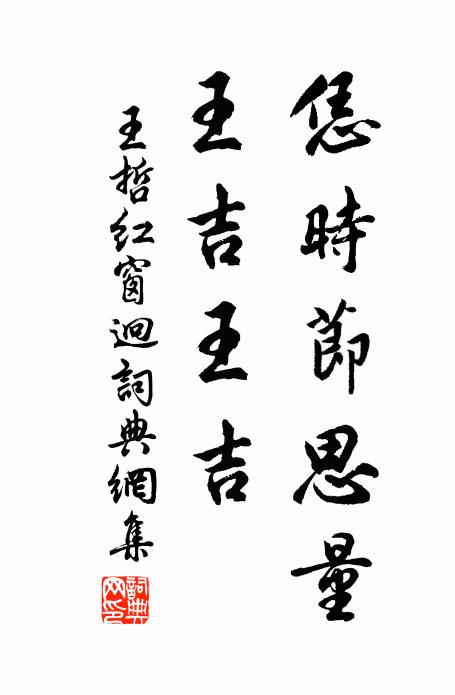 恁時節思量
王吉王吉
王哲红窗迥詞典網集
詞典
网印